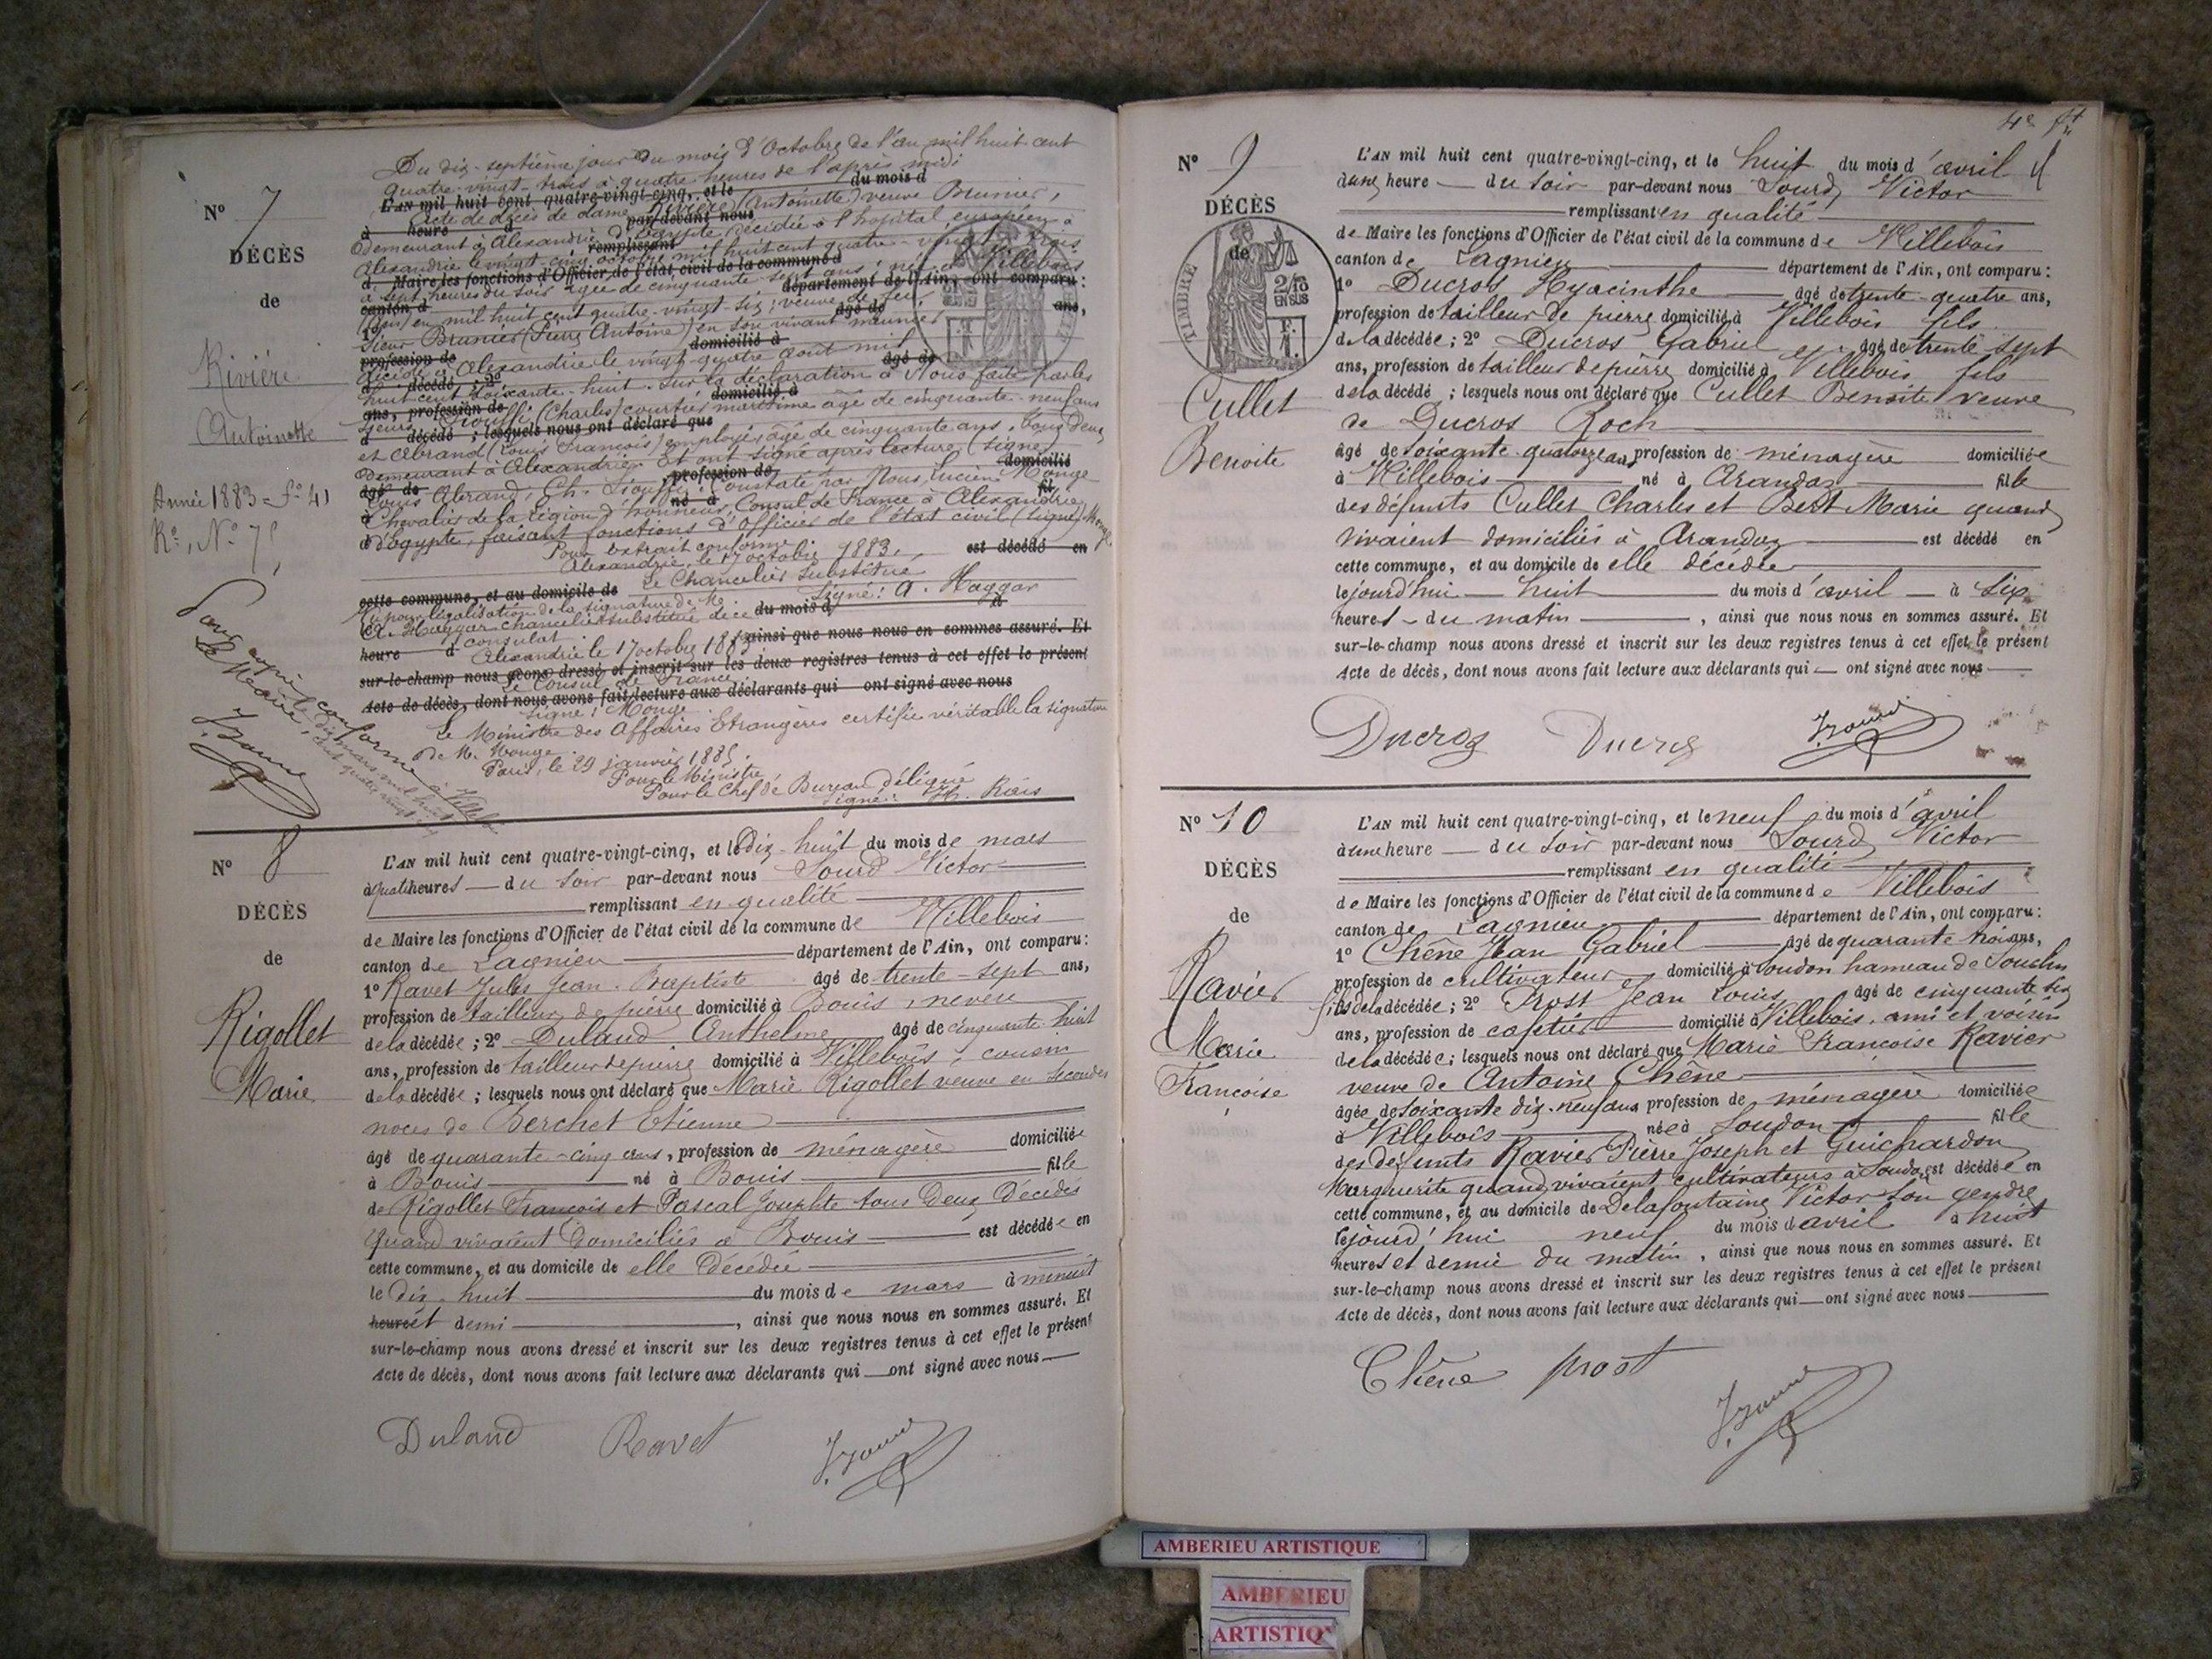 Nº 7
DÉCÈS
de
Rivière
Antoinette
Année 1883 = fº 41
Rº, Nº 75
Pour copie conforme à Villebois
Le Maire,
Du dix-septième jour du mois d'Octobre de l'an mil huit cent
quatre-vingt-trois à quatre heures de l'après midi
L'AN mil huit cent quatre-vingt-cinq, et le du mois d
Acte de décès de dame Rivière (Antoinette) veuve Brunier,
à heure d par-devant nous
demeurant à Alexandrie d'Egypte décédée à l'hopital européen à
remplissant
Alexandrie le vingt-cinq octobre mil huit cent quatre-vingt-trois
d Maire les fonctions d'Officier de l'état civil de la commune d
à sept heures du soir agée de cinquante-sept ans; née à Villebois
canton d département de l'Ain, ont comparu:
(Ain) en mil huit cent quatre-vingt-six; veuve de feu
1º âgé de ans,
sieur Brunier (Pierre Antoine) en son vivant meunier
profession de domicilié à
décédé à Alexandrie le vingt-quatre août mil
d décédé; 2º âgé de
huit cent soixante-huit. Sur la déclaration à Nous faite par les
ans, profession de domicilié à
sieurs Liouffi (Charles) courtier maritime âgé de cinquante-neuf ans
d décédé; lesquels nous ont déclaré que
et Abrand (Louis François) employé, âgé de cinquante ans, tous deux
demeurant à Alexandrie. Et ont signé après lecture (signé)
âgé de profession de domicilié
Louis Abrand, Ch. Liouffi. Constaté par Nous, Lucien Monge
à né à fil
Chevalier de la Légion d'honneur, Consul de France à Alexandrie
d'Egypte, faisant fonctions d'Officier de l'état civil (signé) Monge
Pour extrait conforme
Alexandrie, le 17 octobre 1883, est décédé en
Le Chancelier Substitué
cette commune, et au domicile de
Signé: A. Haggar
Vu pour légalisation de la signature de Mr
le du mois d à
A. Haggar chancelier substitué de ce
consulat
heure d ainsi que nous nous en sommes assuré. Et
Alexandrie le 17 octobre 1883
sur-le-champ nous avons dressé et inscrit sur les deux registres tenus à cet effet le présent
Le Consul de France
Acte de décès, dont nous avons fait lecture aux déclarants qui ont signé avec nous
signé: Monge
Le Ministre des Affaires Etrangères certifie véritable la signature
de M. Monge
Paris, le 29 janvier 1885.
Pour le Ministre
Pour le Chef de Bureau Délégué
Signé:
Nº 8
DÉCÈS
de
Rigollet
Marie
L'AN mil huit cent quatre-vingt-cinq, et le dix-huit du mois de mars
à quatre heures du soir par-devant nous Sourd Victor
remplissant en qualité
de Maire les fonctions d'Officier de l'état civil de la commune de Villebois
canton de Lagnieu département de l'Ain, ont comparu:
1º Ravet Jules Jean-Baptiste âgé de trente-sept ans,
profession de tailleur de pierre domicilié à Bouis, neveu
de la décédée; 2º Duland Anthelme âgé de cinquante-huit
ans, profession de tailleur de pierre domicilié à Villebois, cousin
de la décédée; lesquels nous ont déclaré que Marie Rigollet veuve en secondes
noces de Berchet Etienne
âgé de quarante-cinq ans, profession de ménagère domiciliée
à Bouis né à Bouis fille
de Rigollet François et Pascal Josephte tous deux décédés
quand vivaient domiciliés à Bouis est décédée en
cette commune, et au domicile de elle décédée
le dix-huit du mois de mars à minuit
heure et demi, ainsi que nous nous en sommes assuré. Et
sur-le-champ nous avons dressé et inscrit sur les deux registres tenus à cet effet le présent
Acte de décès, dont nous avons fait lecture aux déclarants qui ont signé avec nous
Duland Ravet
4e ft
Nº 9
DÉCÈS
de
TIMBRE
2/10
EN SUS
Cullet
Benoite
L'AN mil huit cent quatre-vingt-cinq, et le huit du mois d'avril
à une heure du soir par-devant nous Sourd Victor
remplissant en qualité
de Maire les fonctions d'Officier de l'état civil de la commune de Villebois
canton de Lagnieu département de l'Ain, ont comparu:
1º Ducros Hyacinthe âgé de trente-quatre ans,
profession de tailleur de pierre domicilié à Villebois fils
de la décédée; 2º Ducros Gabriel âgé de trente sept
ans, profession de tailleur de pierre domicilié à Villebois fils
de la décédé; lesquels nous ont déclaré que Cullet Benoite veuve
de Ducros Roch
âgé de soixante-quatorze ans profession de ménagère domiciliée
à Villebois né à Arandaz fille
des défunts Cullet Charles et Bert Marie quand
vivaient domiciliés à Arandaz est décédé en
cette commune, et au domicile de elle décédée
le jourd'hui huit du mois d'avril à six
heures du matin, ainsi que nous nous en sommes assuré. Et
sur-le-champ nous avons dressé et inscrit sur les deux registres tenus à cet effet le présent
Acte de décès, dont nous avons fait lecture aux déclarants qui ont signé avec nous
Ducros Ducros
Nº 10
DÉCÈS
de
Ravier
Marie
Françoise
L'AN mil huit cent quatre-vingt-cinq, et le neuf du mois d'avril
à une heure du soir par-devant nous Sourd Victor
remplissant en qualité
de Maire les fonctions d'Officier de l'état civil de la commune de Villebois
canton de Lagnieu département de l'Ain, ont comparu:
1º Chêne Jean Gabriel âgé de quarante trois ans,
profession de cultivateur domicilié à Soudon hameau de Souclin
fils de la décédée; 2º Prost Jean Louis âgé de cinquante six
ans, profession de cafetier domicilié à Villebois, ami et voisin
de la décédée; lesquels nous ont déclaré que Marie Françoise Ravier
veuve de Antoine Chêne
âgée de soixante dix-neuf ans profession de ménagère domiciliée
à Villebois née à Soudon fille
des défunts Ravier Pierre Joseph et Guichardon
Marguerite quand vivaient cultivateurs à Soudon est décédée en
cette commune, et au domicile de Delafontaine Victor son gendre
le jourd'hui neuf du mois d'avril à huit
heures et demie du matin, ainsi que nous nous en sommes assuré. Et
sur-le-champ nous avons dressé et inscrit sur les deux registres tenus à cet effet le présent
Acte de décès, dont nous avons fait lecture aux déclarants qui ont signé avec nous
Chêne prost
AMBERIEU ARTISTIQUE
AMBERIEU
ARTISTIQ